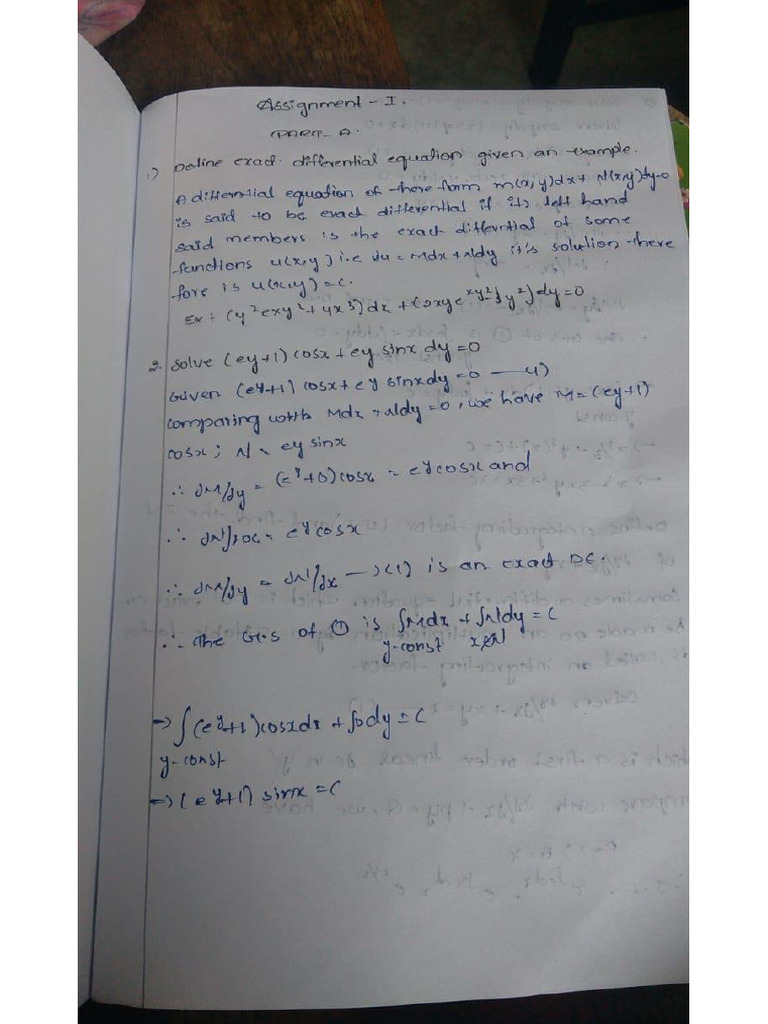 Assignment - I.
PART - A.
1) Define exact differential equation given an example.
A differential equation of there form M(x,y)dx + N(x,y)dy=0
is said to be exact differential if its left hand
said members is the exact differntial of some
functions u(x,y) i.e du = Mdx + Ndy it's solution there
fore is u(x,y) = c.
Ex : (y²exy² + 4x³)dx + (2xye^xy² - 3y²)dy=0
2. Solve (ey+1) cosx + ey sinx dy =0
Given (e^y+1) cosx + ey sinxdy =0 — 1)
comparing with Mdx + Ndy =0, we have M = (ey+1)
cosx ; N = ey sinx
∴ ∂M/∂y = (e^y+0) cosx = e^y cosx and
∴ ∂N/∂x = e^y cosx
∴ ∂M/∂y = ∂N/∂x → (1) is an exact DE.
∴ The G.S of ① is ∫Mdx + ∫Ndy = C
y-const
⇒ ∫(e^y+1) cosxdx + ∫0dy = C
y-const
⇒ (e^y+1) sinx = C